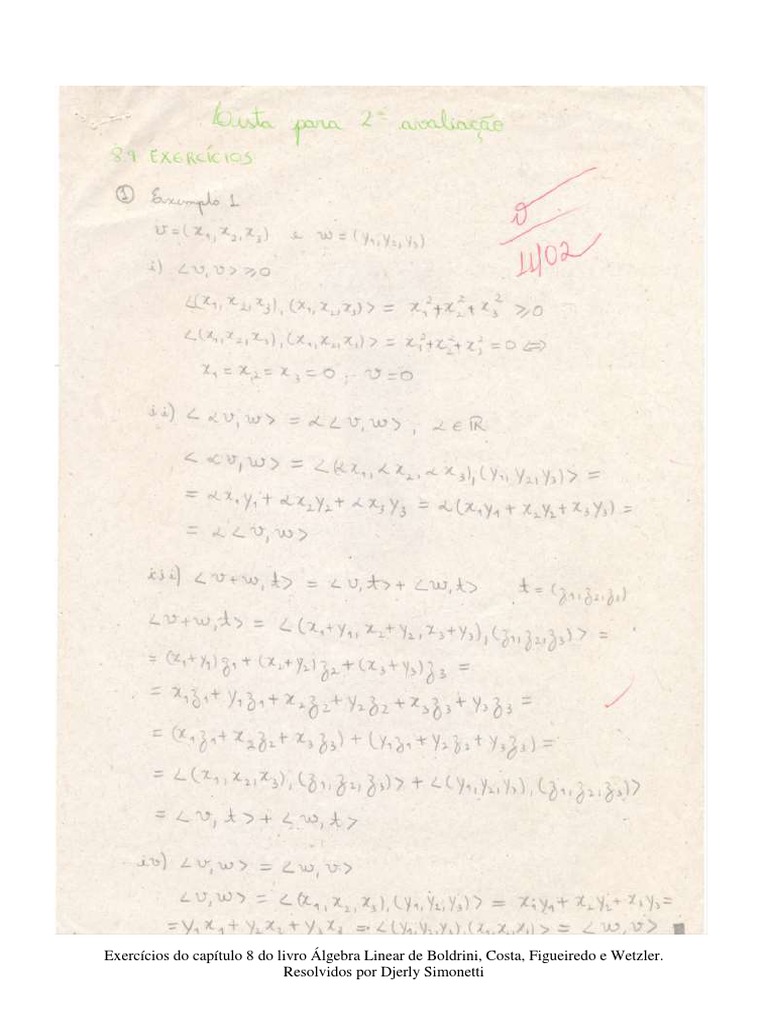 Lista para 2ª avaliação
8.9 EXERCÍCIOS
① Exemplo 1
v=(x₁,x₂,x₃) e w=(y₁,y₂,y₃)
11/02
i) <v,v> ≥0
<(x₁,x₂,x₃),(x₁,x₂,x₃)> = x₁²+x₂²+x₃² ≥0
<(x₁,x₂,x₃),(x₁,x₂,x₃)> = x₁²+x₂²+x₃² =0 ⇔
x₁=x₂=x₃=0 ∴ v=0
ii) <αv,w> = α<v,w>, α∈ℝ
<αv,w> = <(αx₁,αx₂,αx₃),(y₁,y₂,y₃)> =
= αx₁y₁+αx₂y₂+αx₃y₃ = α(x₁y₁+x₂y₂+x₃y₃) =
= α<v,w>
iii) <v+w,t> = <v,t>+<w,t> t=(z₁,z₂,z₃)
<v+w,t> = <(x₁+y₁,x₂+y₂,x₃+y₃),(z₁,z₂,z₃)> =
= (x₁+y₁)z₁+(x₂+y₂)z₂+(x₃+y₃)z₃ =
= x₁z₁+y₁z₁+x₂z₂+y₂z₂+x₃z₃+y₃z₃ =
= (x₁z₁+x₂z₂+x₃z₃)+(y₁z₁+y₂z₂+y₃z₃) =
= <(x₁,x₂,x₃),(z₁,z₂,z₃)>+<(y₁,y₂,y₃),(z₁,z₂,z₃)>
= <v,t>+<w,t>
iv) <v,w> = <w,v>
<v,w> = <(x₁,x₂,x₃),(y₁,y₂,y₃)> = x₁y₁+x₂y₂+x₃y₃=
=y₁x₁+y₂x₂+y₃x₃ = <(y₁,y₂,y₃),(x₁,x₂,x₃)> = <w,v>
Exercícios do capítulo 8 do livro Álgebra Linear de Boldrini, Costa, Figueiredo e Wetzler.
Resolvidos por Djerly Simonetti